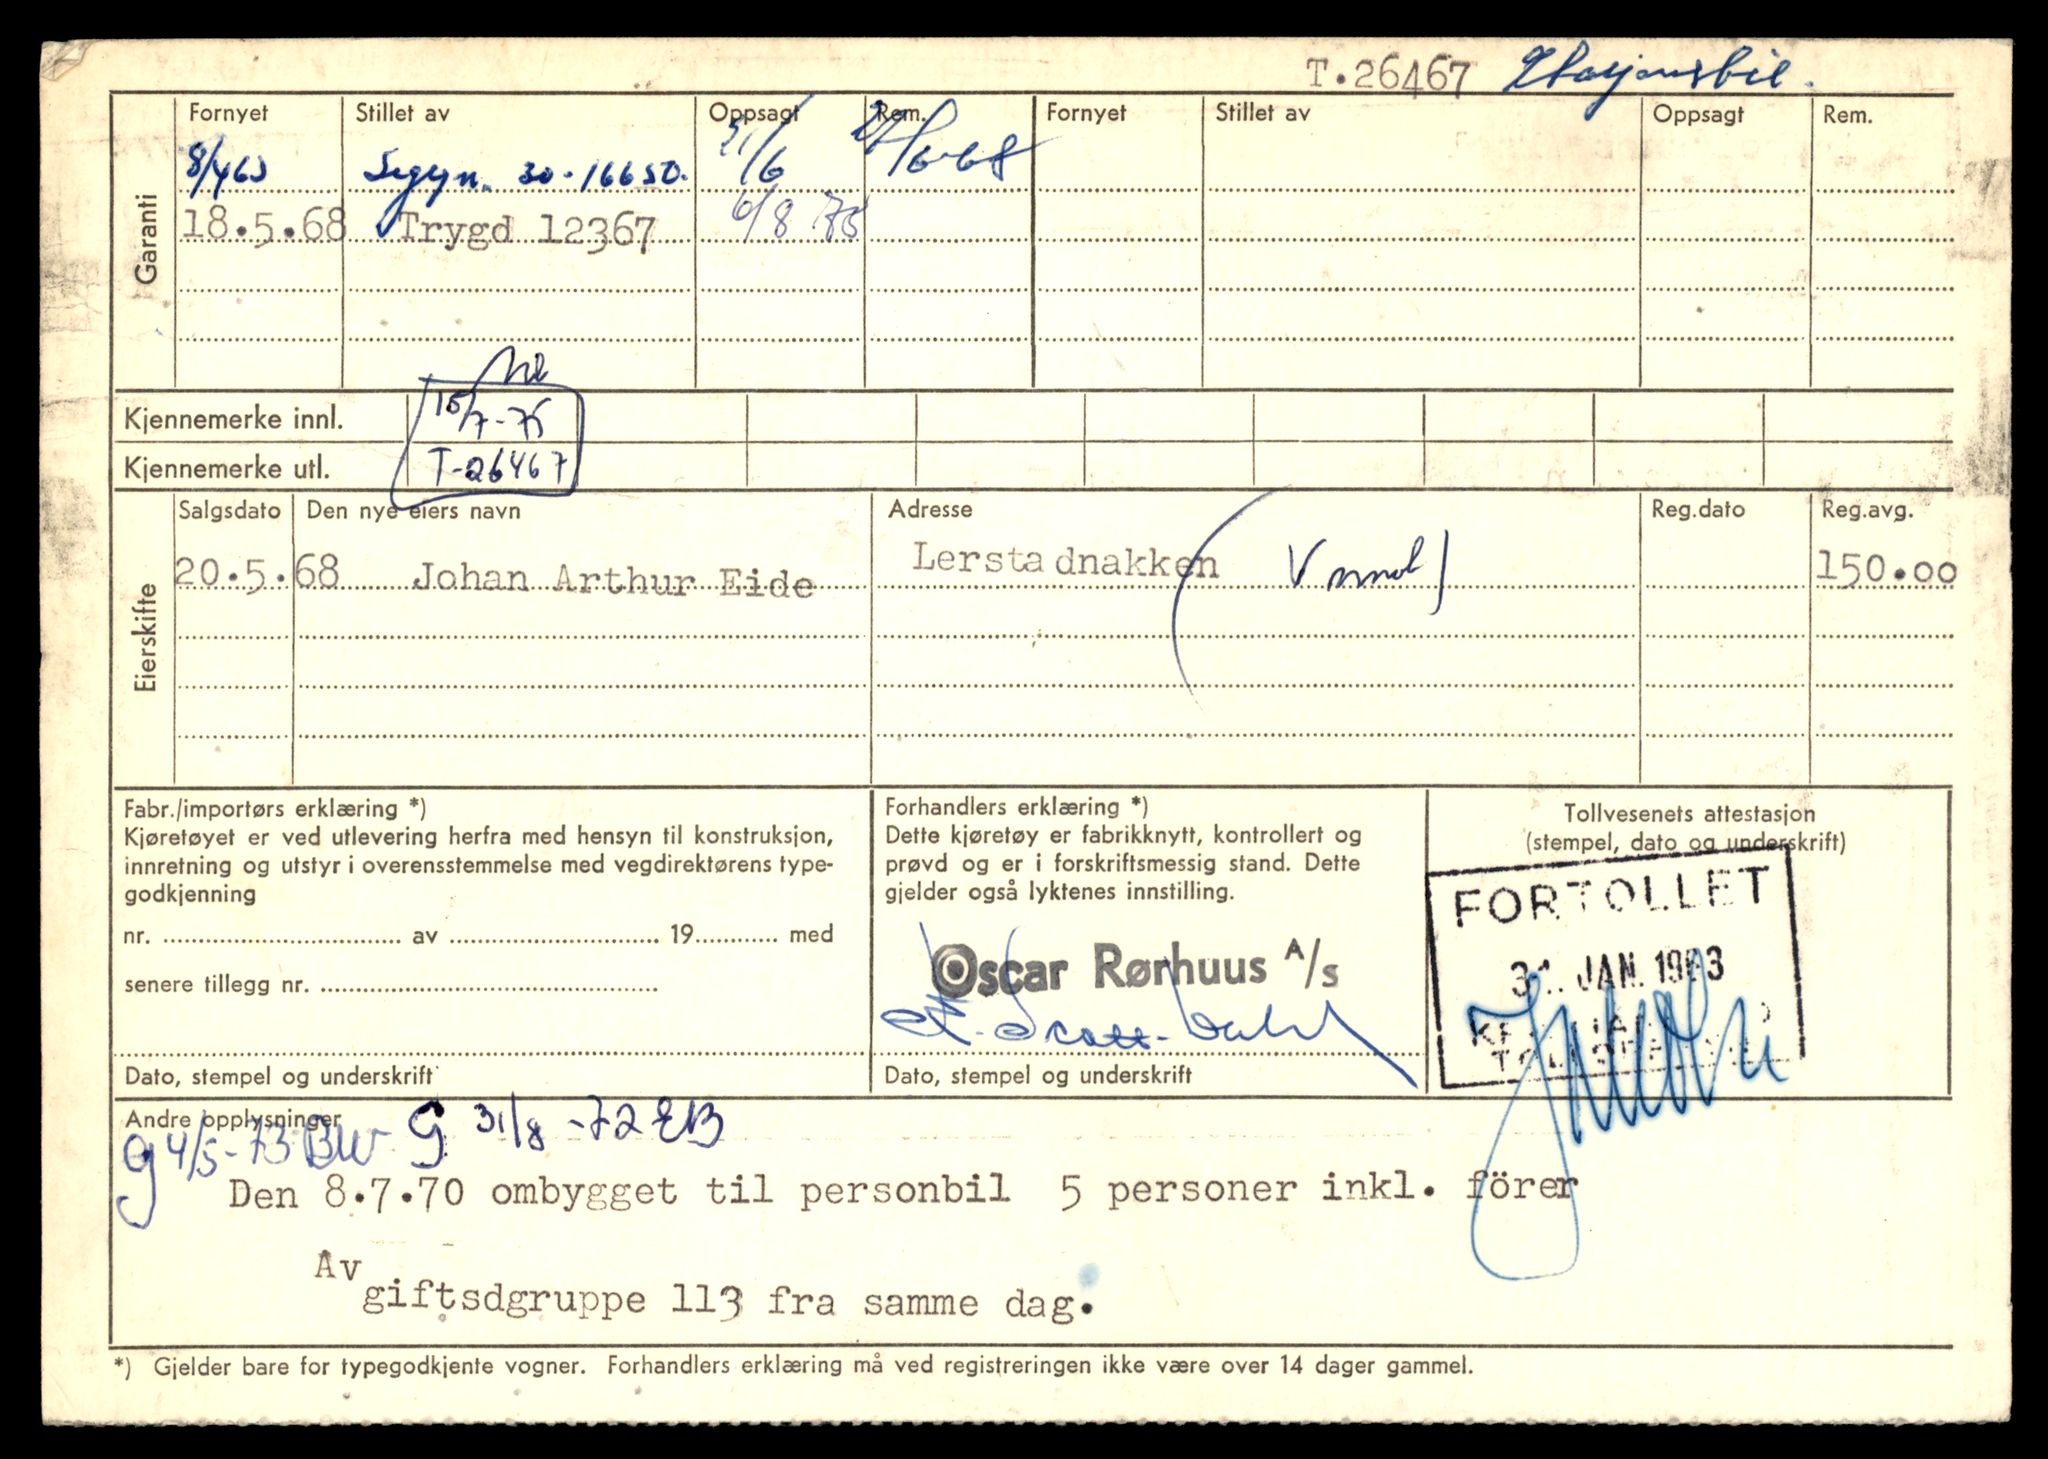 T.26467 Stasjonsbil.
Fornyet Stillet av Oppsagt Rem. Fornyet Stillet av Oppsagt Rem.
8/463 Sygyn. 30-16650. 21/6 21/6-68
18.5.68 Trygd 12367 6/8 75
Garanti
Kjennemerke innl. 15/7-75
Kjennemerke utl. T-26467
Salgsdato Den nye eiers navn Adresse Reg.dato Reg.avg.
20.5.68 Johan Arthur Eide Lerstadnakken 150.00
Eierskifte
Fabr./importørs erklæring *)
Kjøretøyet er ved utlevering herfra med hensyn til konstruksjon,
innretning og utstyr i overensstemmelse med vegdirektørens type-
godkjenning
nr. av 19 med
senere tillegg nr.
Dato, stempel og underskrift
Forhandlers erklæring *)
Dette kjøretøy er fabrikknytt, kontrollert og
prøvd og er i forskriftsmessig stand. Dette
gjelder også lyktenes innstilling.
Oscar Rørhuus A/s
Dato, stempel og underskrift
Tollvesenets attestasjon
(stempel, dato og underskrift)
FORTOLLET
31. JAN. 1963
Andre opplysninger
g 4/5-73 BW G 31/8-72 EB
Den 8.7.70 ombygget til personbil 5 personer inkl. förer
Av
giftsdgruppe 113 fra samme dag.
*) Gjelder bare for typegodkjente vogner. Forhandlers erklæring må ved registreringen ikke være over 14 dager gammel.